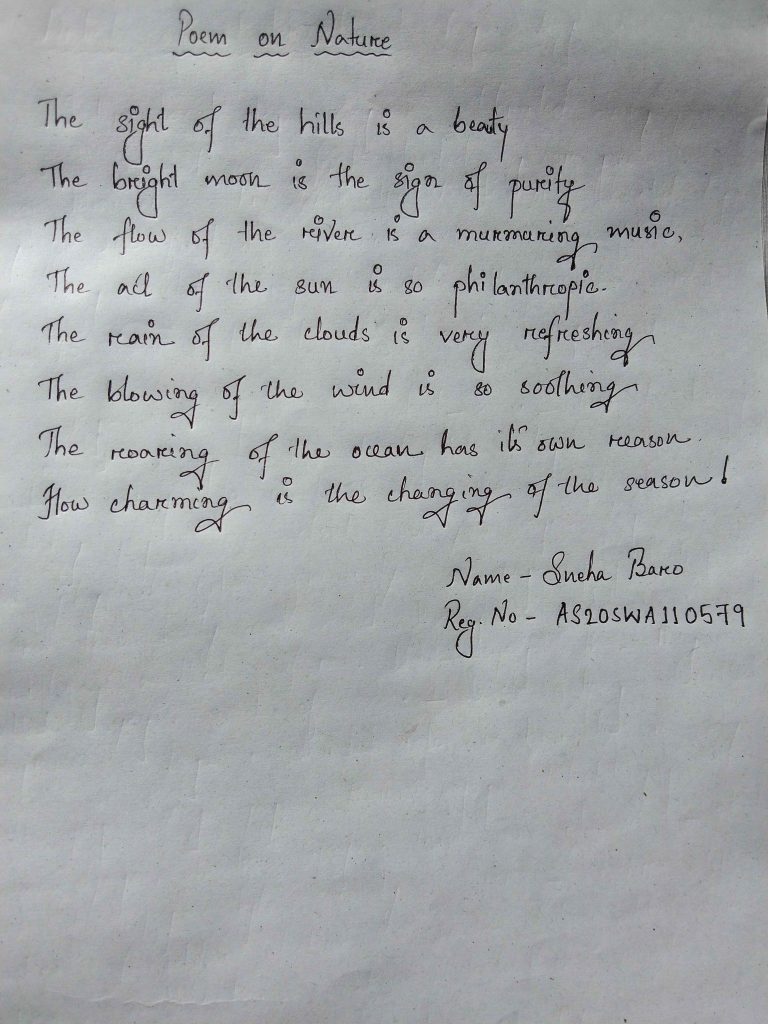 Poem on Nature
The sight of the hills is a beauty
The bright moon is the sign of purity
The flow of the river is a murmuring music,
The act of the sun is so philanthropic.
The rain of the clouds is very refreshing
The blowing of the wind is so soothing
The roaring of the ocean has its own reason.
How charming is the changing of the season!
Name - Sneha Baro
Reg. No - AS20SWA110579